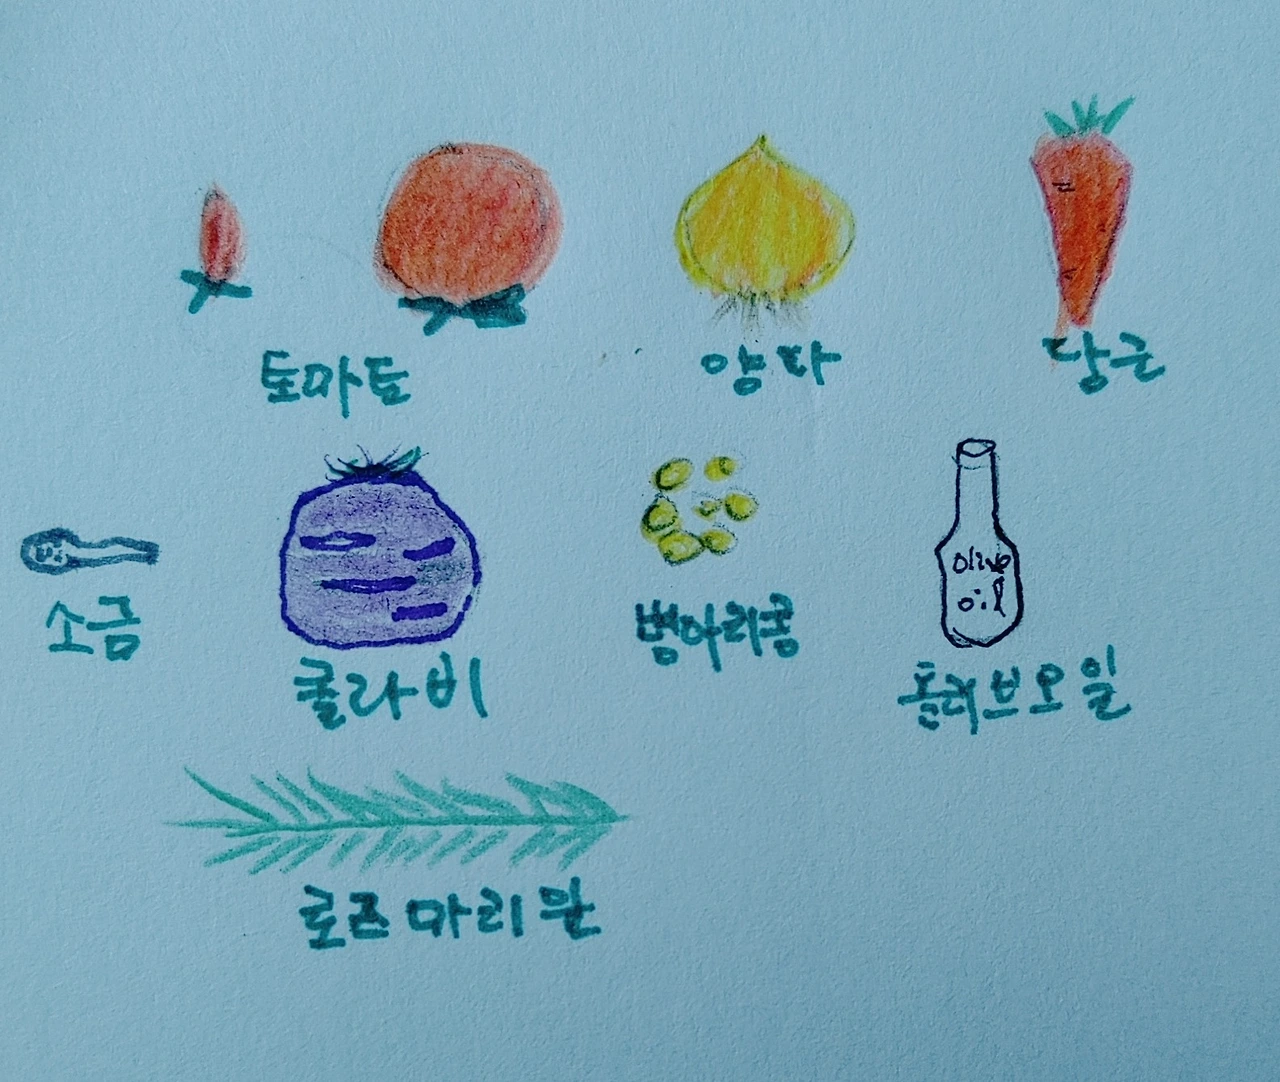 토마토
양파
당근
소금
콜라비
병아리콩
olive
oil
올리브오일
로즈마리